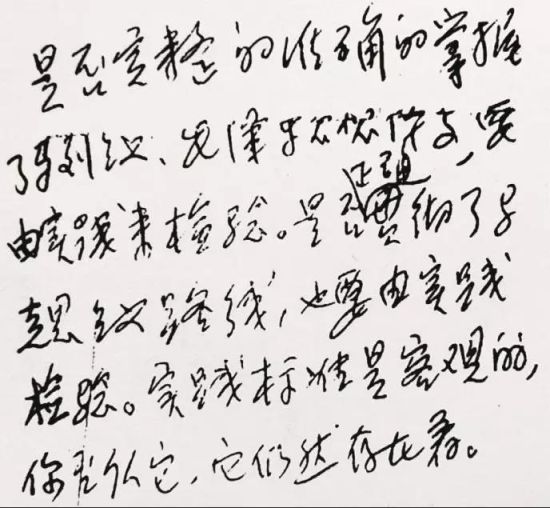 是否完整的准确的掌握
了马列主义、毛泽东思想体系，要
由实践来检验。是否正确贯彻了马
克思主义路线，也要由实践
检验。实践标准是客观的，
你否认它，它仍然存在着。